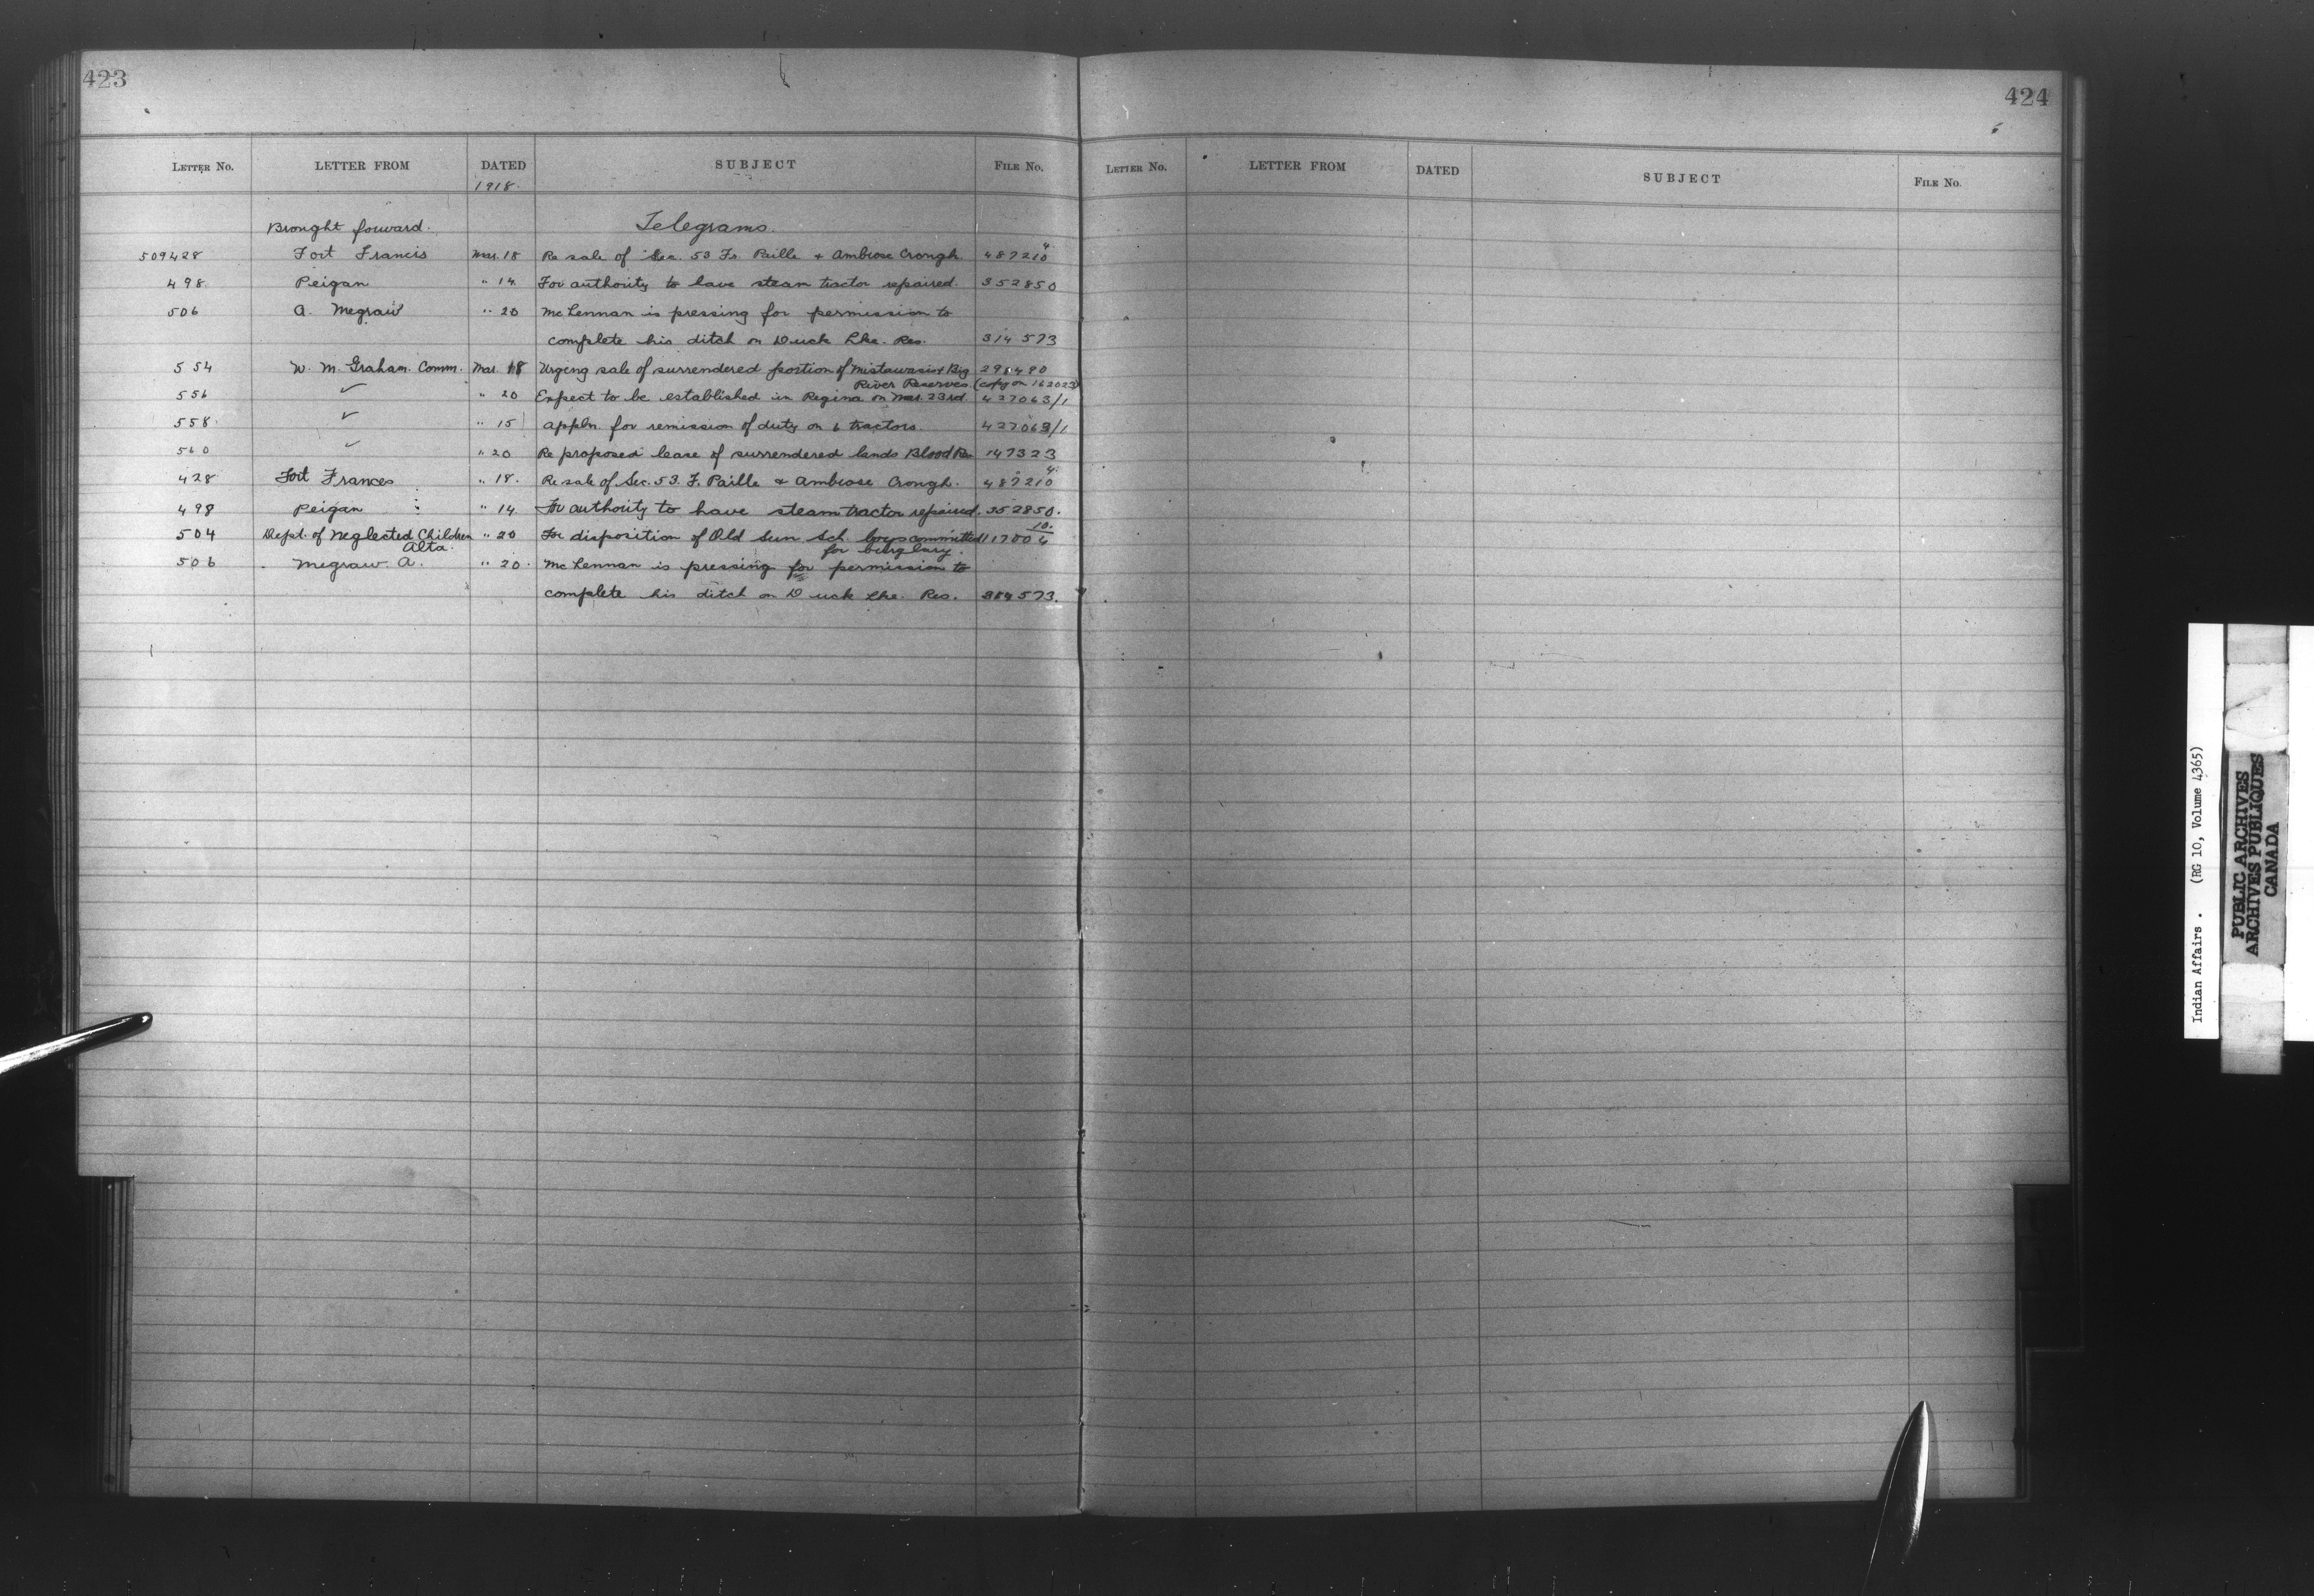 423
LETTER NO. LETTER FROM DATED SUBJECT FILE NO.
1918.
Brought forward. Telegrams.
509428 Fort Francis Mar. 18 Re sale of Sec. 53 Fr. Paille & Ambrose Crough 487210 4
498 Peigan " 14. For authority to have steam tractor repaired. 352850
506 A. Megraw " 20 McLennan is pressing for permission to
complete his ditch on Duck Lke. Res. 314573
554 W. M. Graham. Comm. Mar. 18 Urging sale of surrendered portion of Mistawasis & Big
River Reserves. (copy on 162023)
556 ✓ " 20 Expect to be established in Regina on Mar. 23rd 427063/1
558 ✓ " 15 Appln. for remission of duty on 6 tractors. 427063/1
560 ✓ " 20 Re proposed lease of surrendered lands Blood Res 147323
428 Fort Frances " 18. Re sale of Sec. 53. F. Paille & Ambrose Crough. 487210 4
498 Peigan " 14. For authority to have steam tractor repaired. 352850.
504 Dept. of Neglected Children " 20 For disposition of Old Sun Sch. boys committed 117004 10.
Alta. for burglary.
506 Megraw A. " 20. McLennan is pressing for permission to
complete his ditch on Duck Lke. Res. 314573.
424
LETTER NO. LETTER FROM DATED SUBJECT FILE NO.
Indian Affairs. (RG 10, Volume 4365)
PUBLIC ARCHIVES
ARCHIVES PUBLIQUES
CANADA